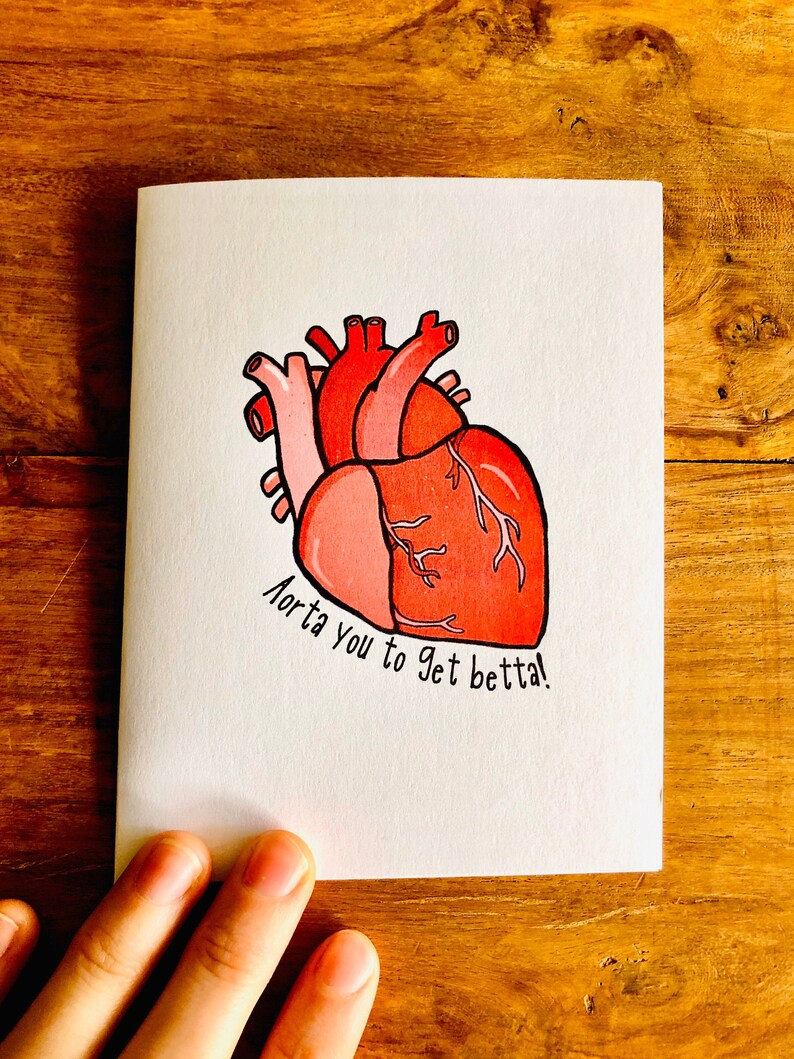 Aorta you to get betta!